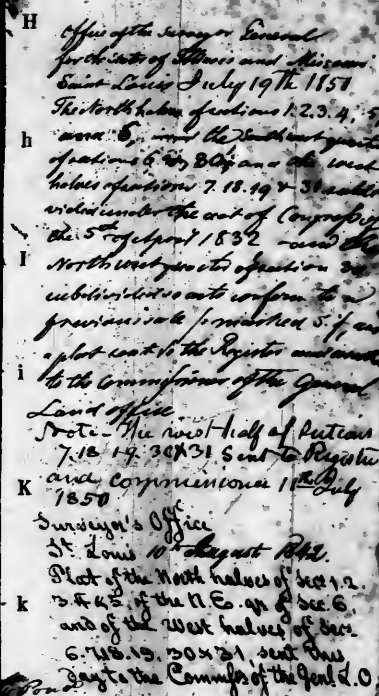 H
Office of the Surveyor General
for the State of Illinois and Missouri
Saint Louis July 19th 1851
The North halves of sections 1. 2. 3. 4, 5
h
and 6, and the Southeast quart
of sections 6 and the west
halves of sections 7. 18. 19 & 30 subdi
vided under the act of Congress of
the 5th of April 1832 and the
I
North west quarter of section
subdivided so as to conform to a
previous sale marked S. and
a plat sent to the Register and
i
to the Commissioner of the General
Land office
Note - The west half of Sections
7. 18 19. 30 & 31 sent to Register
K
and commissioner 11th July
1850
Surveyor's Office
St. Louis 10th August 1842.
Plat of the North halves of secs 1. 2.
k
3. 4 & 5, of the N. E. qr of Sec. 6,
and of the West halves of secs
6. 7. 18. 19. 30 & 31 sent this
day to the Commiss of the Genl L. O.